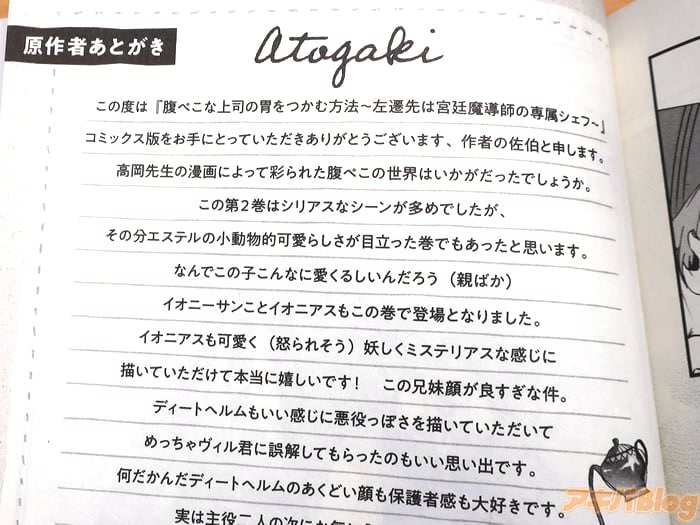 原作者あとがき
atogaki
この度は『腹ぺこな上司の胃をつかむ方法~左遷先は宮廷魔導師の専属シェフ~』
コミックス版をお手にとっていただきありがとうございます、作者の佐伯と申します。
高岡先生の漫画によって彩られた腹ぺこの世界はいかがだったでしょうか。
この第2巻はシリアスなシーンが多めでしたが、
その分エステルの小動物的可愛らしさが目立った巻でもあったと思います。
なんでこの子こんなに愛くるしいんだろう（親ばか）
イオニーサンことイオニアスもこの巻で登場となりました。
イオニアスも可愛く（怒られそう）妖しくミステリアスな感じに
描いていただけて本当に嬉しいです！　この兄妹顔が良すぎな件。
ディートヘルムもいい感じに悪役っぽさを描いていただいて
めっちゃヴィル君に誤解してもらったのもいい思い出です。
何だかんだディートヘルムのあくどい顔も保護者感も大好きです。
実は主役二人の次にお気に
アキバBlog